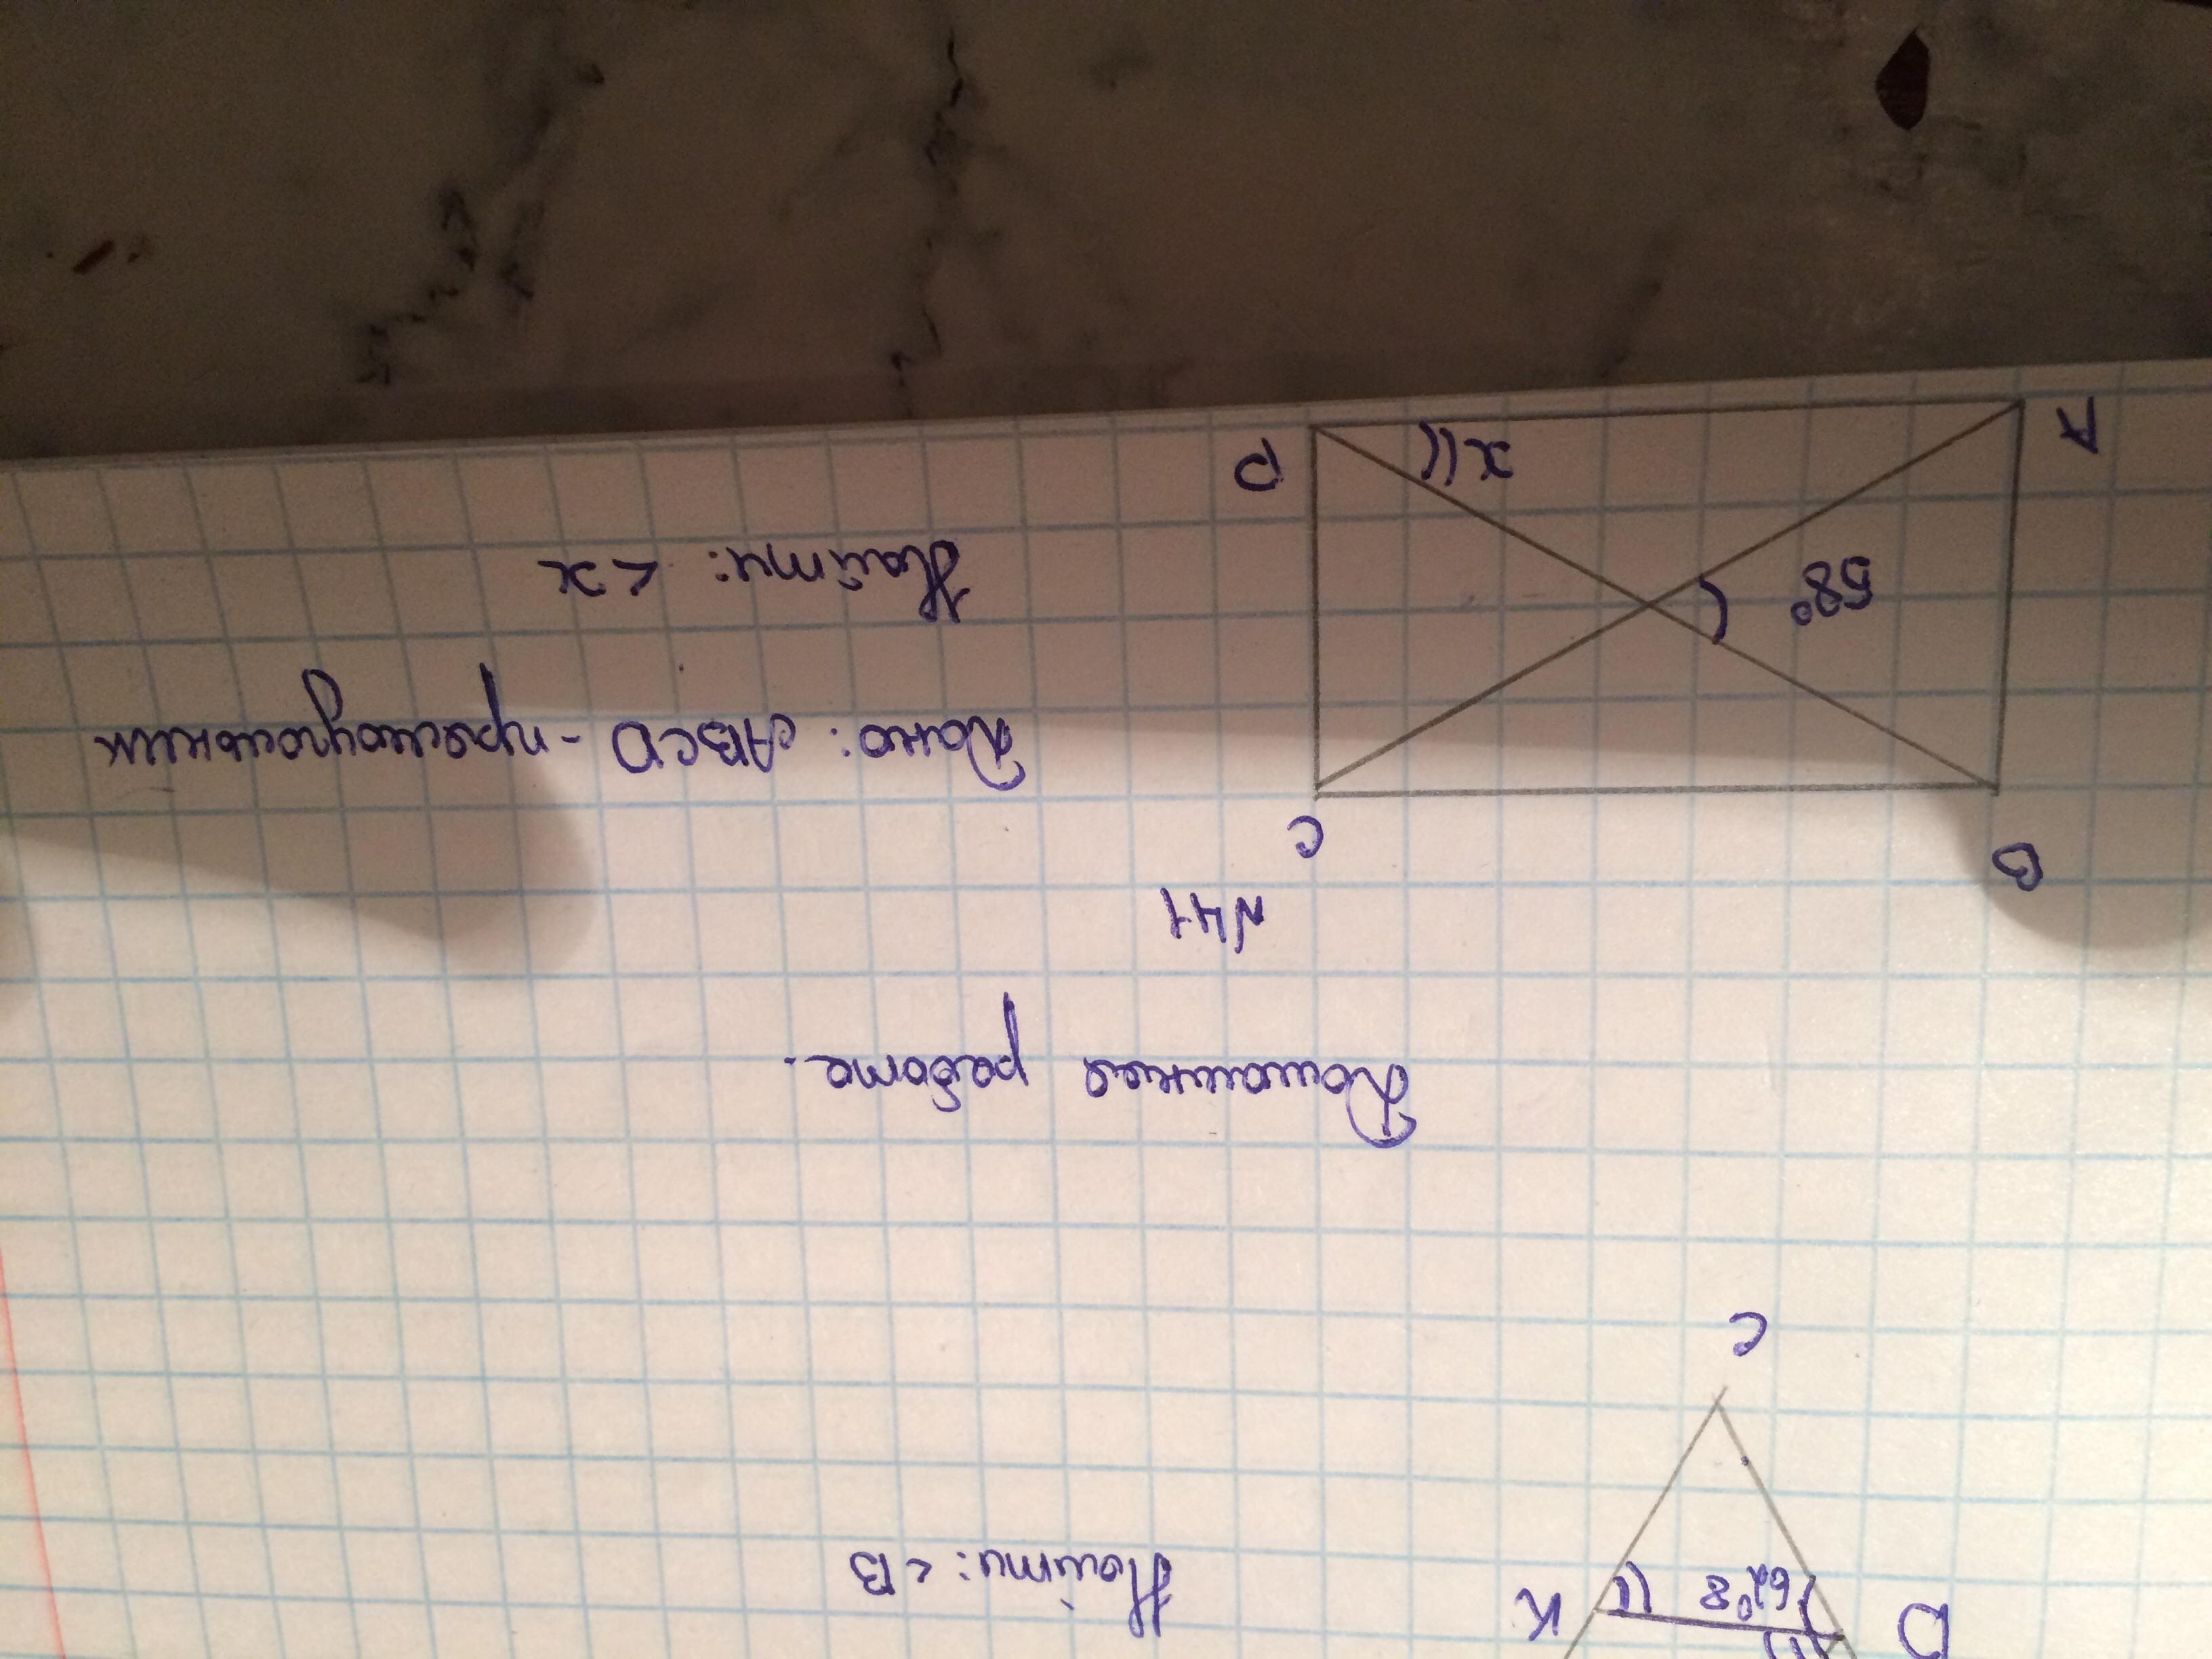 K
D
62°
8
Найти: <B
C
Домашняя работа.
N41
B
C
Дано: ABCD - прямоугольник
58°
Найти: <x
A
x
D